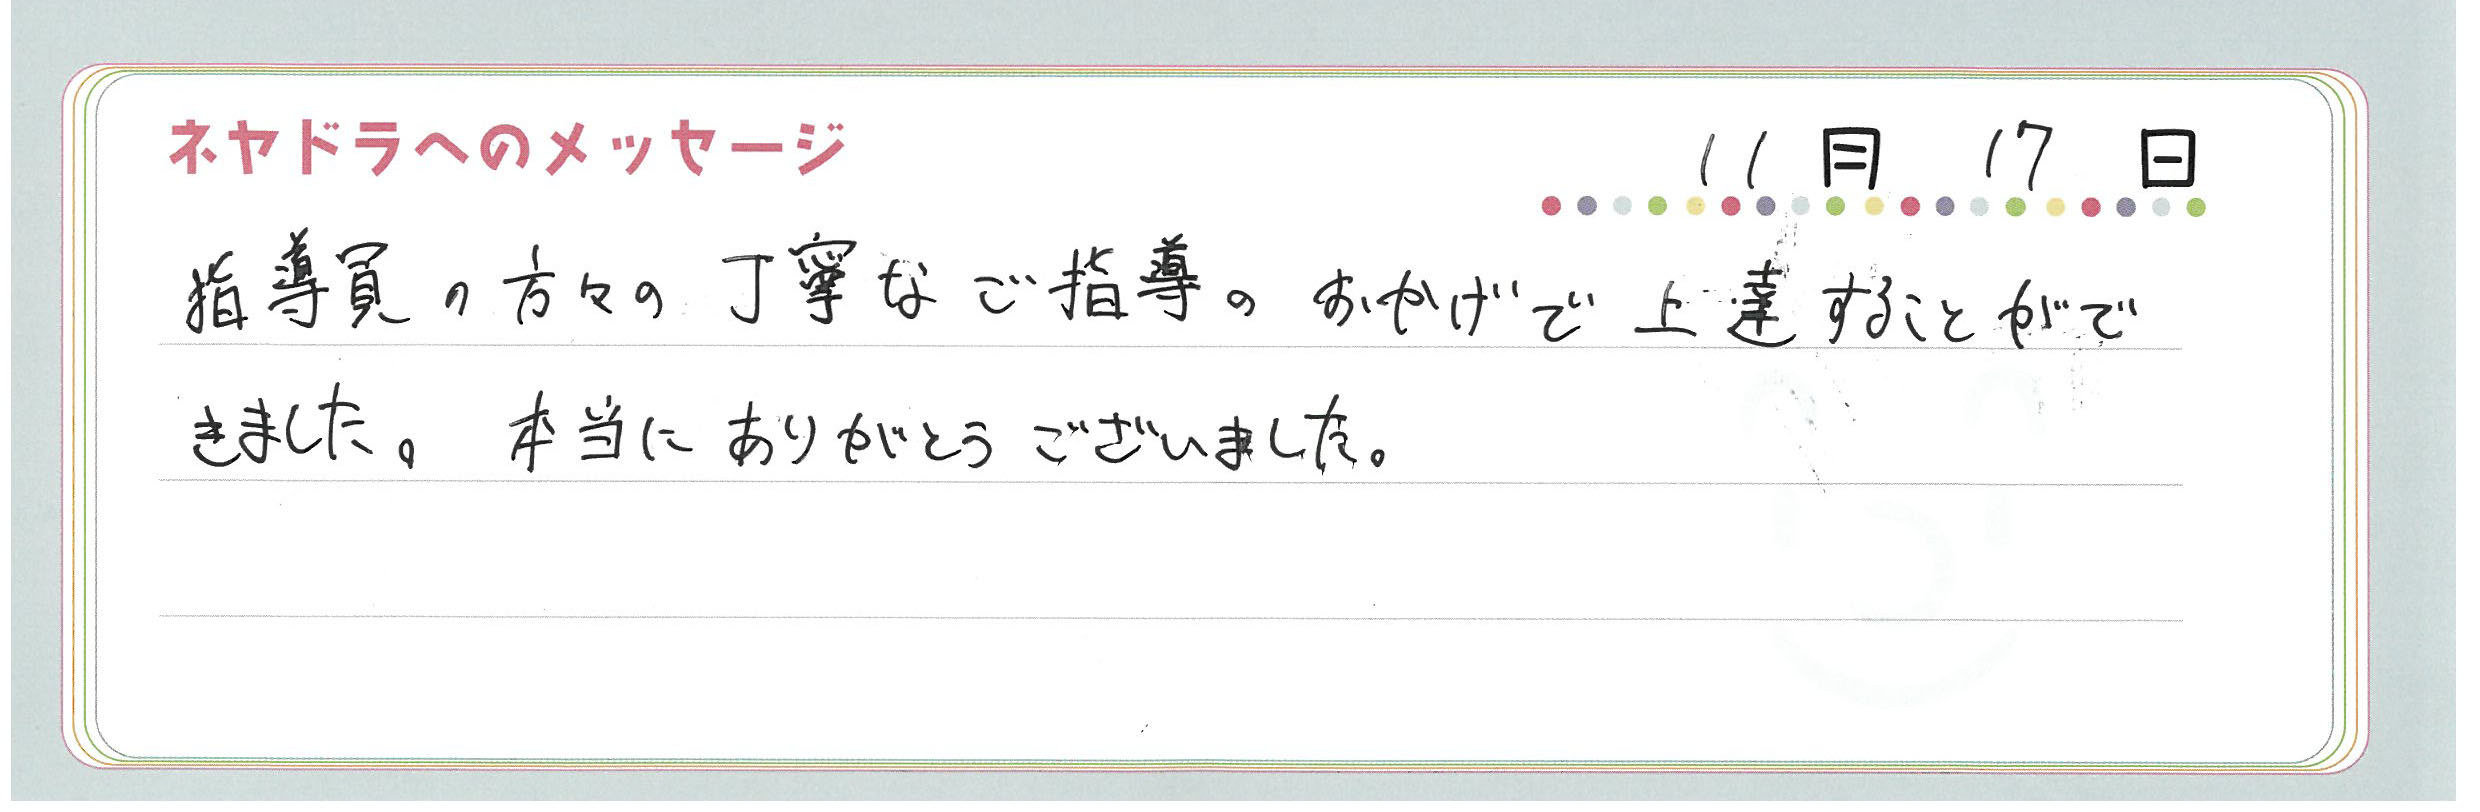 ネヤドラへのメッセージ
11月 17日
指導員の方々の丁寧なご指導のおかげで上達することがで
きました。 本当にありがとうございました。